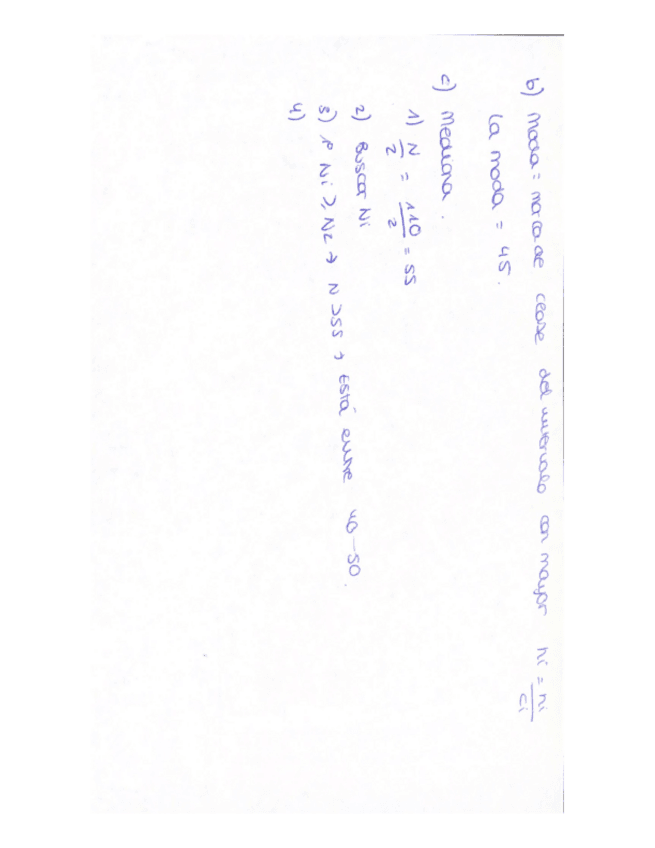 b) Moda = marca de clase del intervalo con mayor hi = ni/ci
La moda = 45.
c) Mediana.
1) N/2 = 110/2 = 55
2) Buscar Ni
3) 1º Ni ≥ N2 → N > 55 → Está entre 40-50.
4)